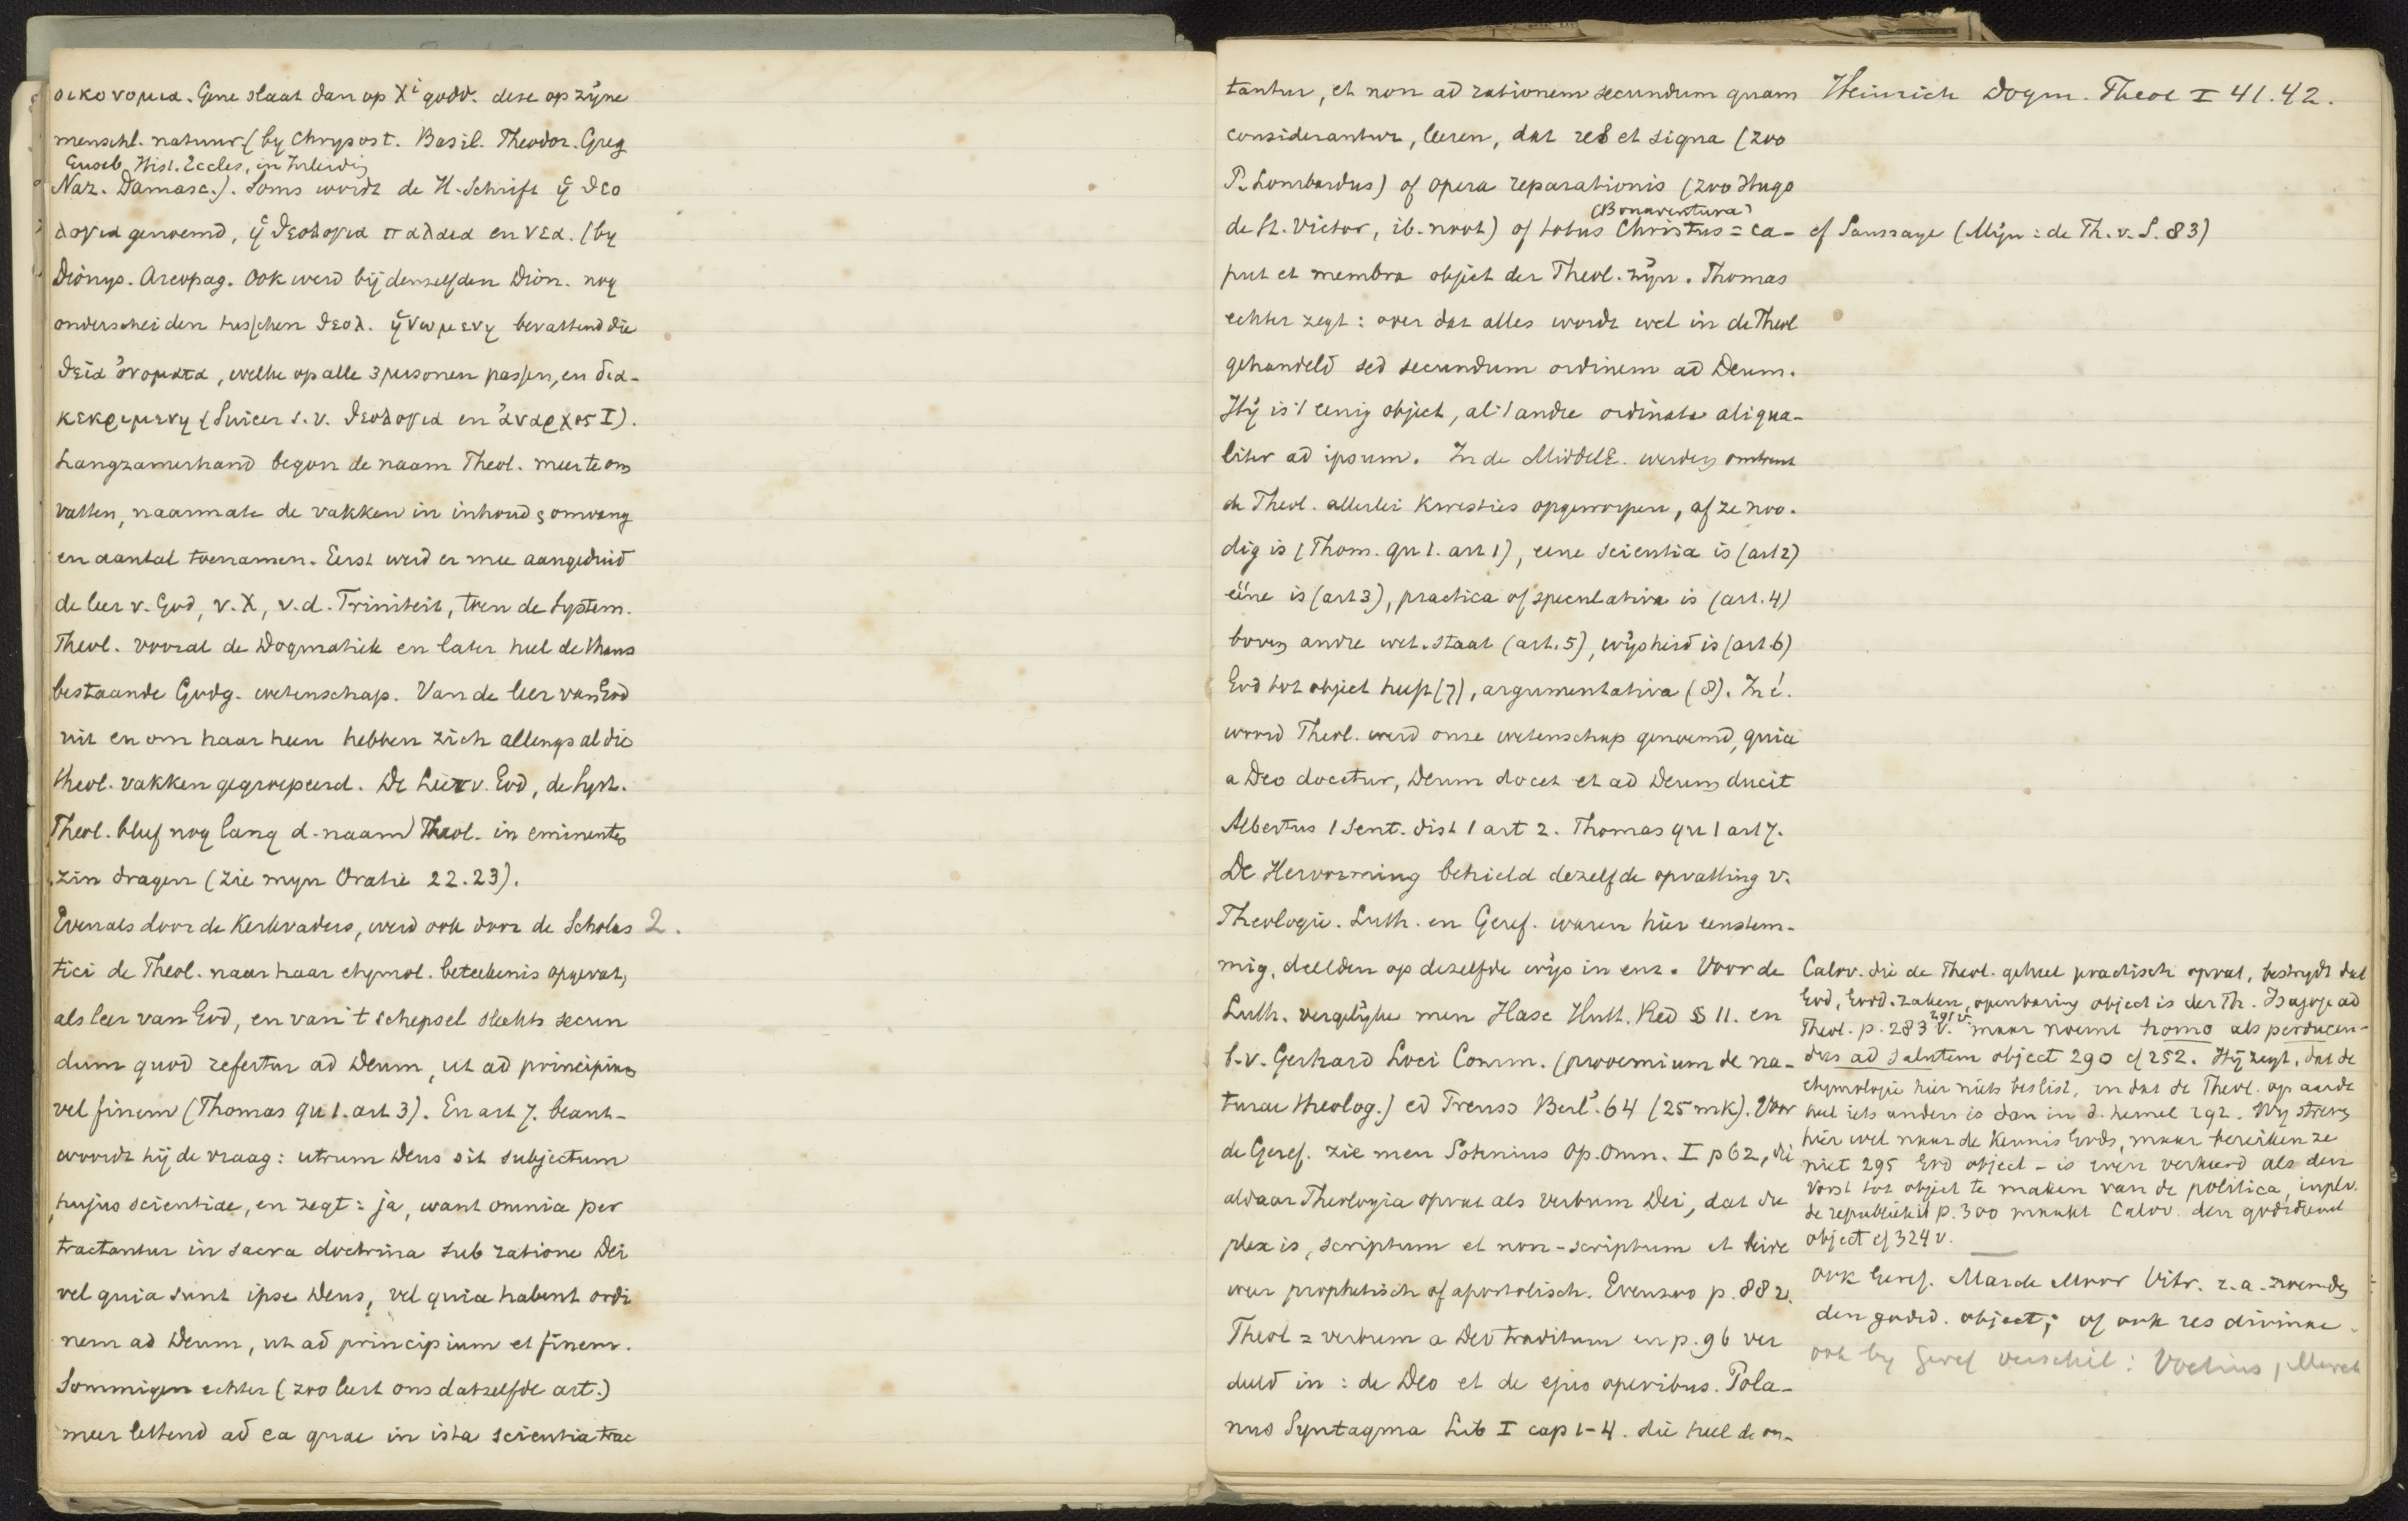 οικονομια. Gene slaat dan op Xi godd. deze op zijne
menschl. natuur (by Chrysost. Basil. Theodor. Greg
Euseb. Hist. Eccles, in Inleiding
Naz. Damasc.). Soms wordt de H. Schrift ἡ θεο
λογια genoemd, ἡ θεολογια παλαια en νεα. (by
Dionys. Areopag. Ook werd bij denzelfden Dion. nog
onderscheiden tusschen θεολ. ἡνωμενη bevattend die
θεῖα ὀνοματα, welke op alle 3 personen passen, en δια-
κεκριμενη (Suicer s.v. θεολογια en ἀναρχος I).
Langzamerhand begon de naam Theol. meer te om
vatten, naarmate de vakken in inhoud, omvang
en aantal toenamen. Eerst werd er mee aangeduid
de leer v. God, v. X, v.d. Triniteit, toen de System.
Theol. vooral de Dogmatiek en later heel de thans
bestaande Godg. wetenschap. Van de leer van God
uit en om haar heen hebben zich allengs al die
theol. vakken gegroepeerd. De Leer v. God, de Syst.
Theol. bleef nog lang d. naam Theol. in eminenten
zin dragen (zie myn Oratie 22.23).
Evenals door de Kerkvaders, werd ook door de Scholas 2.
tici de Theol. naar haar etymol. beteekenis opgevat,
als leer van God, en van 't schepsel slechts secun
dum quod refertur ad Deum, ut ad principium
vel finem (Thomas qu 1. art 3). En art 7. beant-
woordt hij de vraag: utrum Deus sit subjectum
hujus scientiae, en zegt: ja, want omnia per
tractantur in sacra doctrina sub ratione Dei
vel quia sunt ipse Deus, vel quia habent ordi
nem ad Deum, ut ad principium et finem.
Sommigen echter (zoo leert ons datzelfde art.)
meer lettend ad ea quae in ista scientia trac
tantur, et non ad rationem secundum quam
considerantur, leeren, dat res et signa (zoo
P. Lombardus) of opera reparationis (zoo Hugo
(Bonaventura)
de St. Victor, ib. noot) of totus Christus = ca-
put et membra object der Theol. zijn. Thomas
echter zegt: over dat alles wordt wel in de Theol
gehandeld sed secundum ordinem ad Deum.
Hij is 't eenig object, al 't andre ordinata aliqua-
liter ad ipsum. In de MiddelE. werden omtrent
de Theol. allerlei kwesties opgeworpen, of ze noo-
dig is (Thom. qu 1. art 1), eene scientia is (art 2)
ééne is (art 3), practica of speculativa is (art. 4)
boven andre wet. staat (art. 5), wijsheid is (art. 6)
God tot object heeft (7), argumentativa (8). In é.
woord Theol. werd onze wetenschap genoemd, quia
a Deo docetur, Deum docet et ad Deum ducit
Albertus 1 Sent. dist 1 art 2. Thomas qu 1 art 7.
De Hervorming behield dezelfde opvatting v.
Theologie. Luth. en Geref. waren hier eenstem-
mig, deelden op dezelfde wijs in enz. Voor de
Luth. vergelijke men Hase Hutt. Red § 11. en
b.v. Gerhard Loci Comm. (prooemium de na-
turae theolog.) ed Preuss Berl. 64 (25 mk). Voor
de Geref. zie men Sohnius Op. Omn. I p 62, die
aldaar Theologia opvat als verbum Dei, dat du
plex is, scriptum et non-scriptum et beide
weer prophetisch of apostolisch. Evenzoo p. 882.
Theol = verbum a Deo traditum en p. 96 ver
deeld in: de Deo et de ejus operibus. Pola-
nus Syntagma Lib I cap 1-4. die heel de on-
Heinrich Dogm. Theol I 41.42.
cf Saussaye (Mijn: de Th. v. S. 83)
Calov. die de Theol. geheel practisch opvat, bestrydt dat
God, Godd. zaken, openbaring object is der Th. Isagoge ad
291 v.
Theol. p. 283 v. maar noemt homo als perducen-
dus ad salutem object 290 cf 252. Hij zegt, dat de
etymologie hier niets beslist, en dat de Theol. op aarde
heel iets anders is dan in d. hemel 292. Wij streven
hier wel naar de kennis Gods, maar bereiken ze
niet 295 God object - is even verkeerd als den
Vorst tot object te maken van de politica, inplv.
de republiek p. 300 maakt Calov. den godsdienst
object cf 324 v.
ook Geref. Marck Moor Vitr. z.a. noemden
den godsd. object; of ook res divinae
ook by Geref verschil: Voetius, Marck